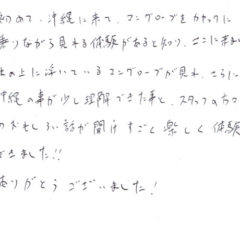 初めて、沖縄に来て、マングローブをカヤックに
乗りながら見れる体験があると知り、ここに来まし
の上に浮いているマングローブが見れ、さらに
沖縄の事が少し理解できた事と、スタッフの方の
のおもしろい話が聞けすごく楽しく体験
できました!!
ありがとうございました!